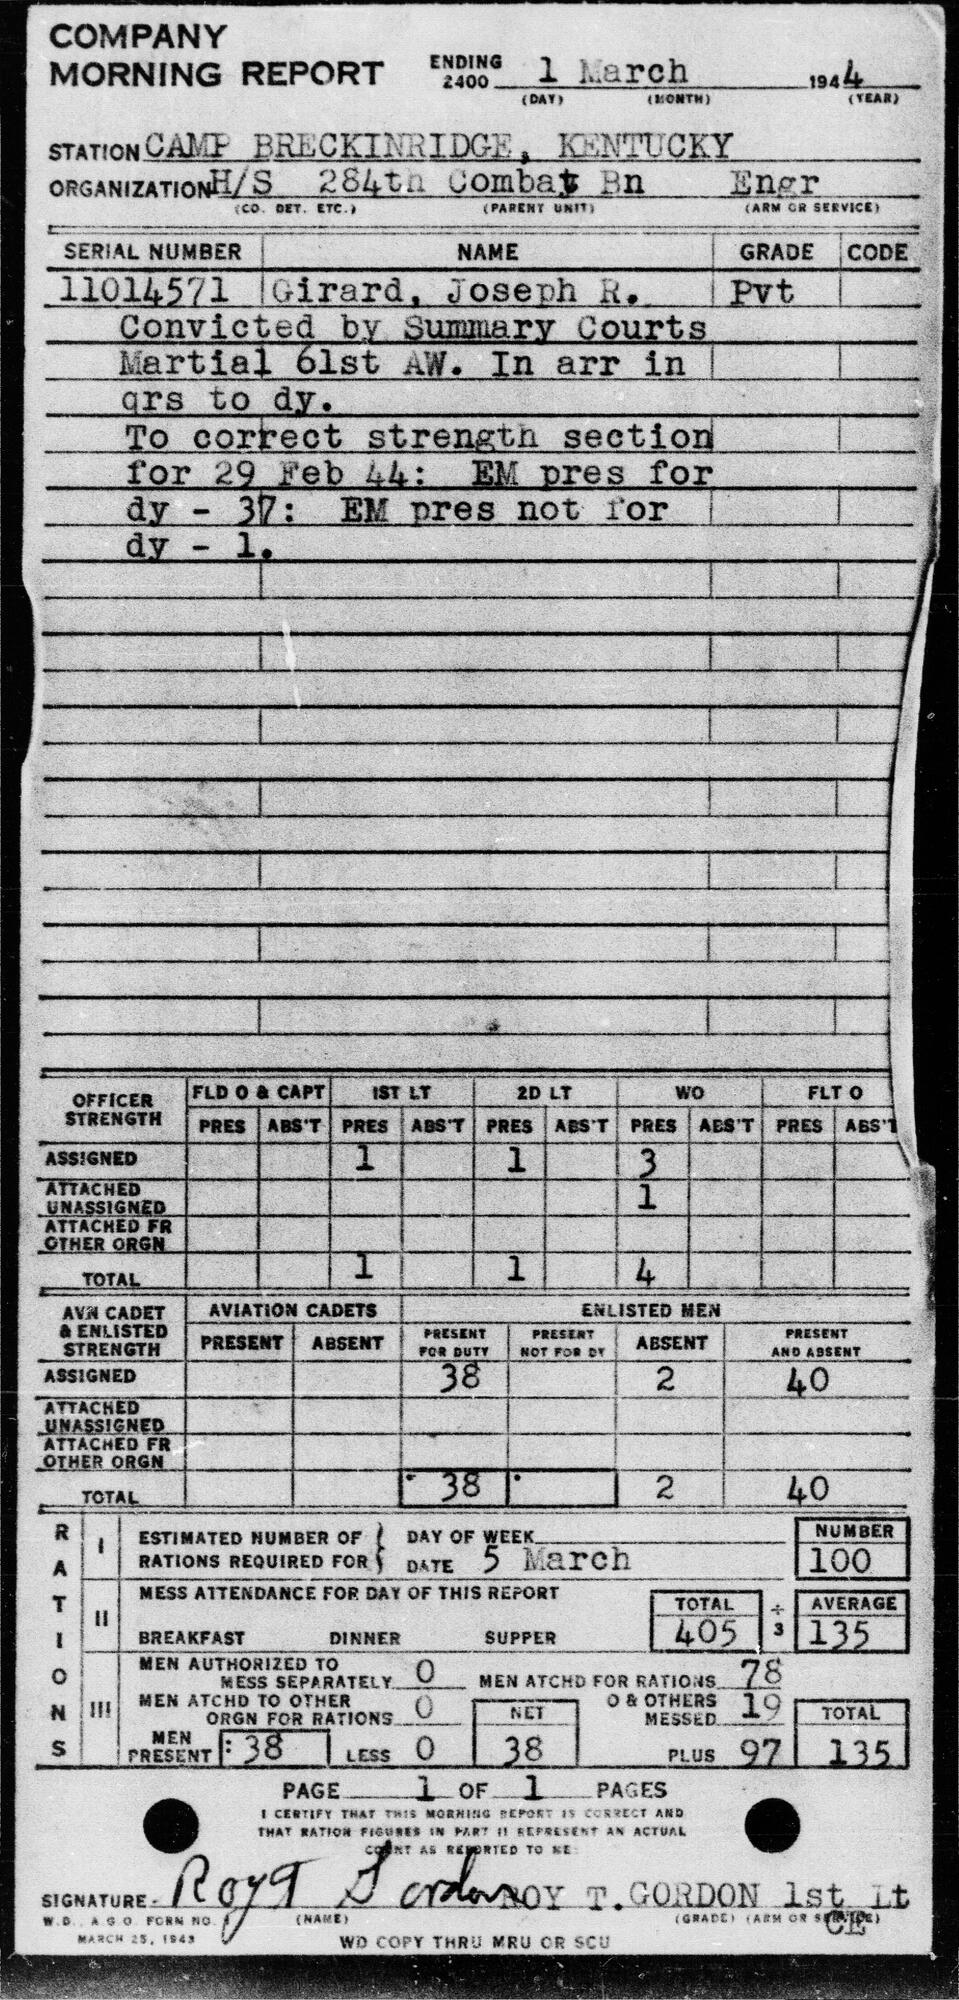 COMPANY
MORNING REPORT ENDING 2400 1 March 1944
(DAY) (MONTH) (YEAR)
STATION CAMP BRECKINRIDGE, KENTUCKY
ORGANIZATION H/S 284th Combat Bn Engr
(CO. DET. ETC.) (PARENT UNIT) (ARM OR SERVICE)
SERIAL NUMBER NAME GRADE CODE
11014571 Girard, Joseph R. Pvt
Convicted by Summary Courts
Martial 61st AW. In arr in
qrs to dy.
To correct strength section
for 29 Feb 44: EM pres for
dy - 37: EM pres not for
dy - 1.
OFFICER STRENGTH FLD O & CAPT 1ST LT 2D LT WO FLT O
PRES ABS'T PRES ABS'T PRES ABS'T PRES ABS'T PRES ABS'T
ASSIGNED 1 1 3
ATTACHED UNASSIGNED 1
ATTACHED FR OTHER ORGN
TOTAL 1 1 4
AVN CADET & ENLISTED STRENGTH AVIATION CADETS ENLISTED MEN
PRESENT ABSENT PRESENT FOR DUTY PRESENT NOT FOR DY ABSENT PRESENT AND ABSENT
ASSIGNED 38 2 40
ATTACHED UNASSIGNED
ATTACHED FR OTHER ORGN
TOTAL 38 2 40
RATIONS
I ESTIMATED NUMBER OF RATIONS REQUIRED FOR DAY OF WEEK NUMBER
DATE 5 March 100
II MESS ATTENDANCE FOR DAY OF THIS REPORT TOTAL ÷ AVERAGE
BREAKFAST DINNER SUPPER 405 3 135
III MEN AUTHORIZED TO MESS SEPARATELY 0 MEN ATCHD FOR RATIONS 78
MEN ATCHD TO OTHER ORGN FOR RATIONS 0 NET O & OTHERS MESSED 19 TOTAL
MEN PRESENT 38 LESS 0 38 PLUS 97 135
PAGE 1 OF 1 PAGES
I CERTIFY THAT THIS MORNING REPORT IS CORRECT AND
THAT RATION FIGURES IN PART II REPRESENT AN ACTUAL
COUNT AS REPORTED TO ME:
SIGNATURE Roy T Gordon ROY T. GORDON 1st Lt
W.D., A.G.O. FORM NO. 1 (NAME) (GRADE) (ARM OR SERVICE) CE
MARCH 25, 1943 WD COPY THRU MRU OR SCU